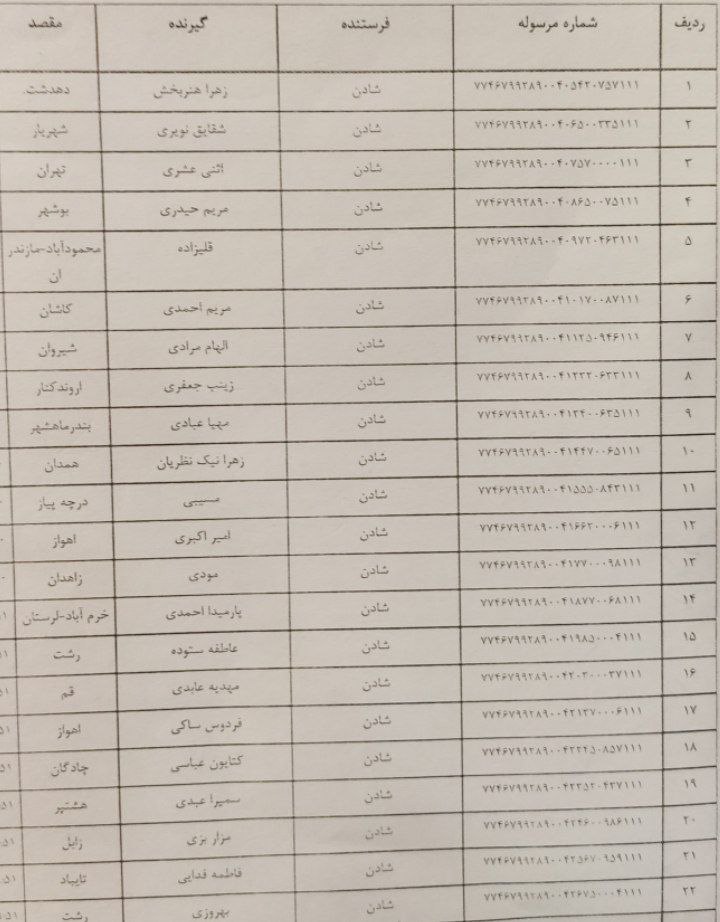 ردیف شماره مرسوله فرستنده گیرنده مقصد
۱ ۷۷۴۶۷۹۹۲۸۹۰۰۴۰۵۴۲۰۷۵۷۱۱۱ شادن زهرا هنربخش دهدشت.
۲ ۷۷۴۶۷۹۹۲۸۹۰۰۴۰۶۵۰۰۳۳۵۱۱۱ شادن شقایق نویری شهریار
۳ ۷۷۴۶۷۹۹۲۸۹۰۰۴۰۷۵۷۰۰۰۰۱۱۱ شادن اثنی عشری تهران
۴ ۷۷۴۶۷۹۹۲۸۹۰۰۴۰۸۶۵۰۰۷۵۱۱۱ شادن مریم حیدری بوشهر
۵ ۷۷۴۶۷۹۹۲۸۹۰۰۴۰۹۷۲۰۴۶۳۱۱۱ شادن قلیزاده محمودآباد-مازندر
ان
۶ ۷۷۴۶۷۹۹۲۸۹۰۰۴۱۰۱۷۰۰۸۷۱۱۱ شادن مریم احمدی کاشان
۷ ۷۷۴۶۷۹۹۲۸۹۰۰۴۱۱۲۵۰۹۴۶۱۱۱ شادن الهام مرادی شیروان
۸ ۷۷۴۶۷۹۹۲۸۹۰۰۴۱۲۳۲۰۶۳۳۱۱۱ شادن زینب جعفری اروندکنار
۹ ۷۷۴۶۷۹۹۲۸۹۰۰۴۱۳۴۰۰۶۳۵۱۱۱ شادن مهیا عبادی بندرماهشهر
۱۰ ۷۷۴۶۷۹۹۲۸۹۰۰۴۱۴۴۷۰۰۶۵۱۱۱ شادن زهرا نیک نظریان همدان
۱۱ ۷۷۴۶۷۹۹۲۸۹۰۰۴۱۵۵۵۰۸۴۳۱۱۱ شادن مسیبی درچه پیاز
۱۲ ۷۷۴۶۷۹۹۲۸۹۰۰۴۱۶۶۲۰۰۰۶۱۱۱ شادن امیر اکبری اهواز
۱۳ ۷۷۴۶۷۹۹۲۸۹۰۰۴۱۷۷۰۰۰۹۸۱۱۱ شادن مودی زاهدان
۱۴ ۷۷۴۶۷۹۹۲۸۹۰۰۴۱۸۷۷۰۰۶۸۱۱۱ شادن پارمیدا احمدی خرم آباد-لرستان
۱۵ ۷۷۴۶۷۹۹۲۸۹۰۰۴۱۹۸۵۰۰۰۴۱۱۱ شادن عاطفه ستوده رشت
۱۶ ۷۷۴۶۷۹۹۲۸۹۰۰۴۲۰۳۰۰۰۳۷۱۱۱ شادن مهدیه عابدی قم
۱۷ ۷۷۴۶۷۹۹۲۸۹۰۰۴۲۱۳۷۰۰۰۶۱۱۱ شادن فردوس ساکی اهواز
۱۸ ۷۷۴۶۷۹۹۲۸۹۰۰۴۲۲۴۵۰۸۵۷۱۱۱ شادن کتایون عباسی چادگان
۱۹ ۷۷۴۶۷۹۹۲۸۹۰۰۴۲۳۵۲۰۴۳۷۱۱۱ شادن سمیرا عبدی هشتپر
۲۰ ۷۷۴۶۷۹۹۲۸۹۰۰۴۲۴۶۰۰۹۸۶۱۱۱ شادن مزار بزی زابل
۲۱ ۷۷۴۶۷۹۹۲۸۹۰۰۴۲۵۶۷۰۹۵۹۱۱۱ شادن فاطمه فدایی تایباد
۲۲ ۷۷۴۶۷۹۹۲۸۹۰۰۴۲۶۷۵۰۰۰۴۱۱۱ شادن بهروزی رشت